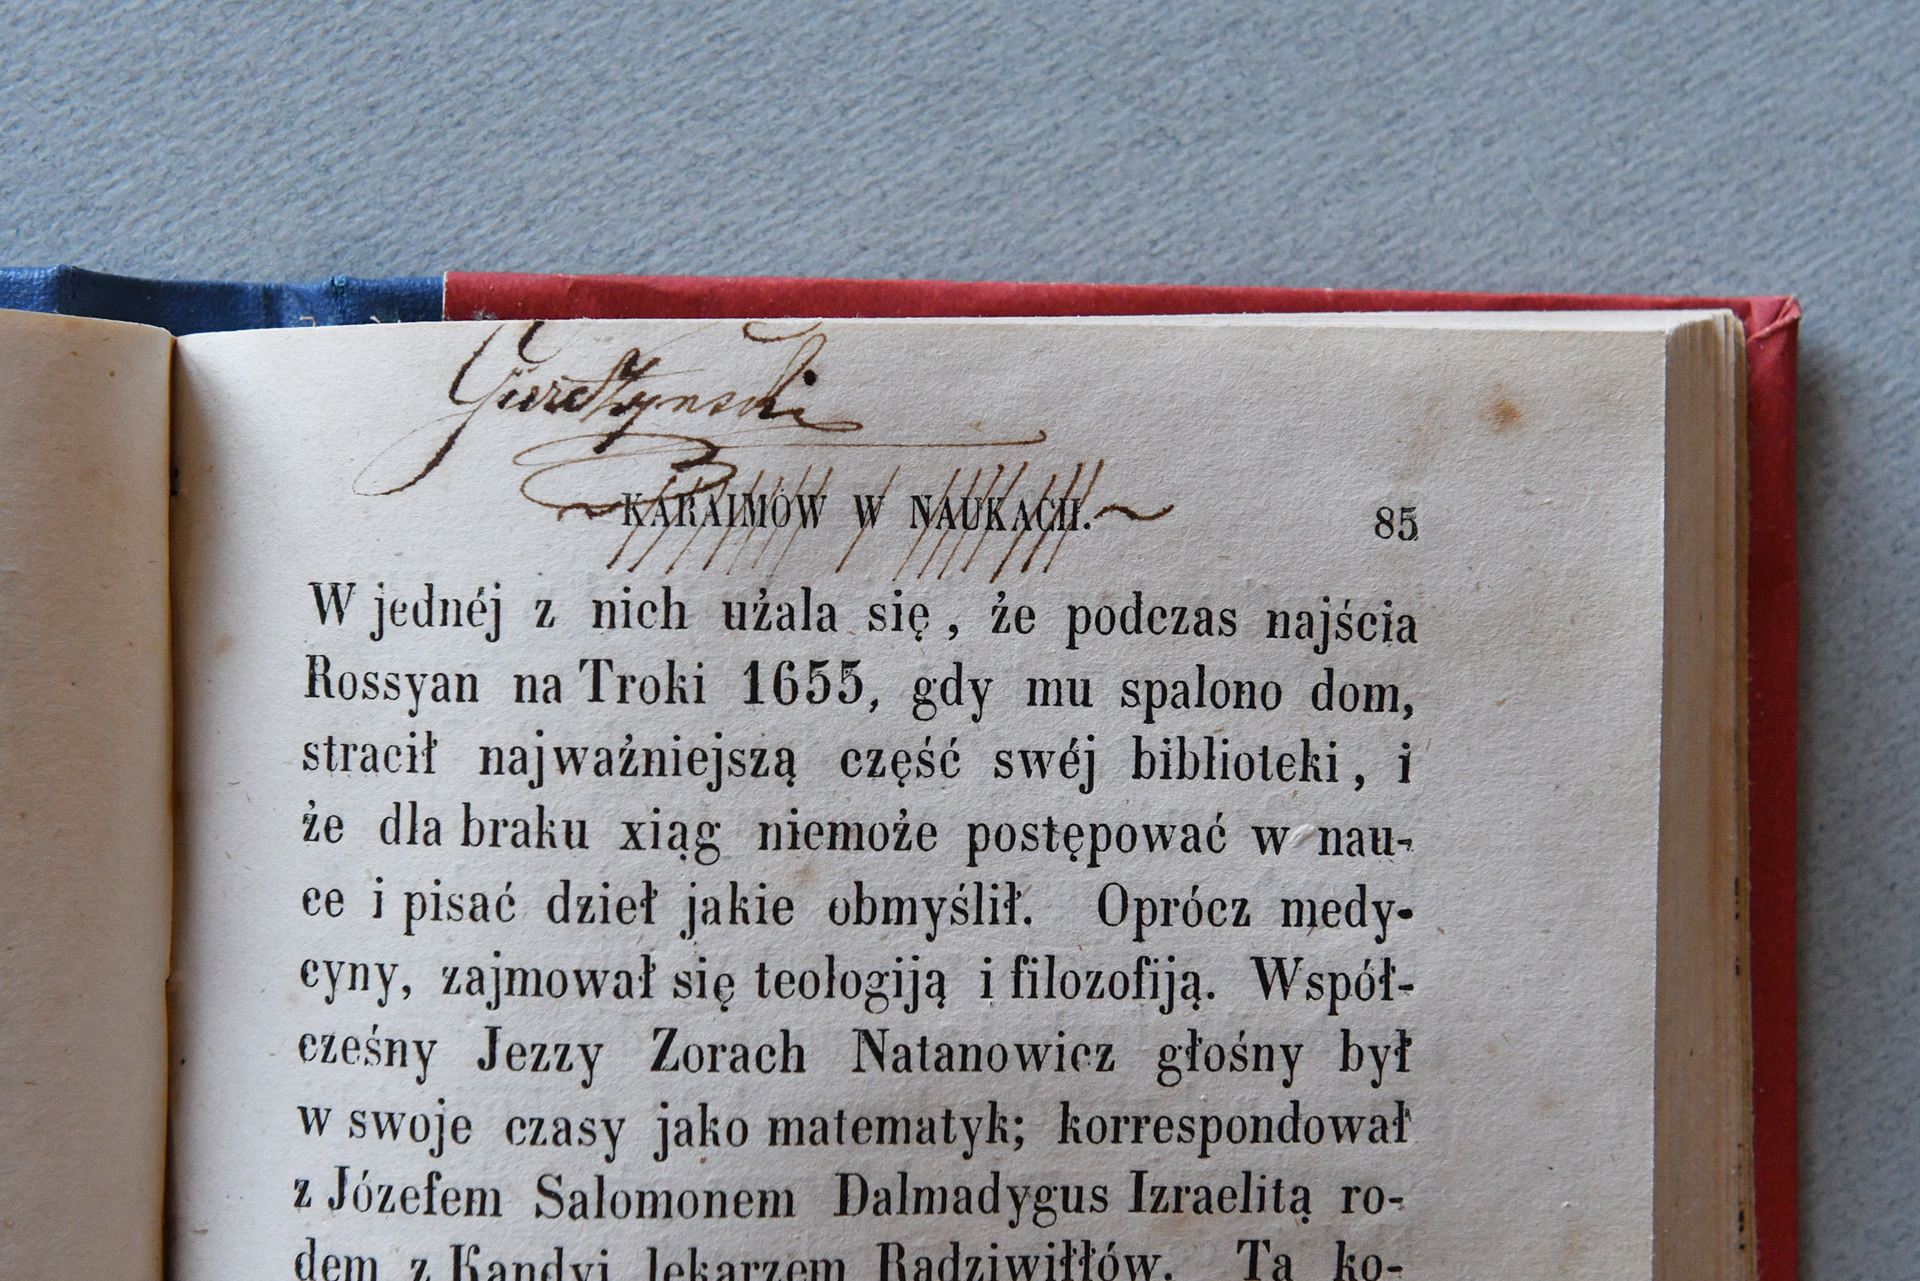 KARAIMÓW W NAUKACH. 85
W jednéj z nich użala się, że podczas najścia
Rossyan na Troki 1655, gdy mu spalono dom,
stracił najważniejszą część swéj biblioteki, i
że dla braku xiąg niemoże postępować w nau-
ce i pisać dzieł jakie obmyślił. Oprócz medy-
cyny, zajmował się teologiją i filozofiją. Współ-
cześny Jezzy Zorach Natanowicz głośny był
w swoje czasy jako matematyk; korrespondował
z Józefem Salomonem Dalmadygus Izraelitą ro-
dem z Kandyi lekarzem Radziwiłłów. Ta ko-